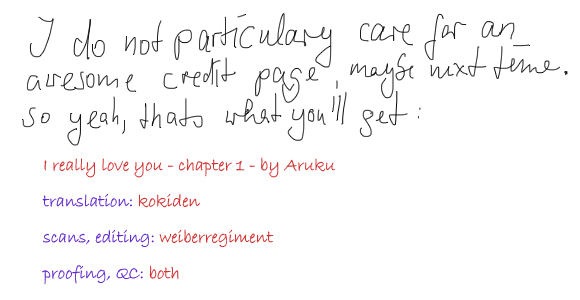 I do not particulary care for an
awesome credit page, maybe next time.
so yeah, thats what you'll get:
I really love you - chapter 1 - by Aruku
translation: kokiden
scans, editing: weiberregiment
proofing, QC: both